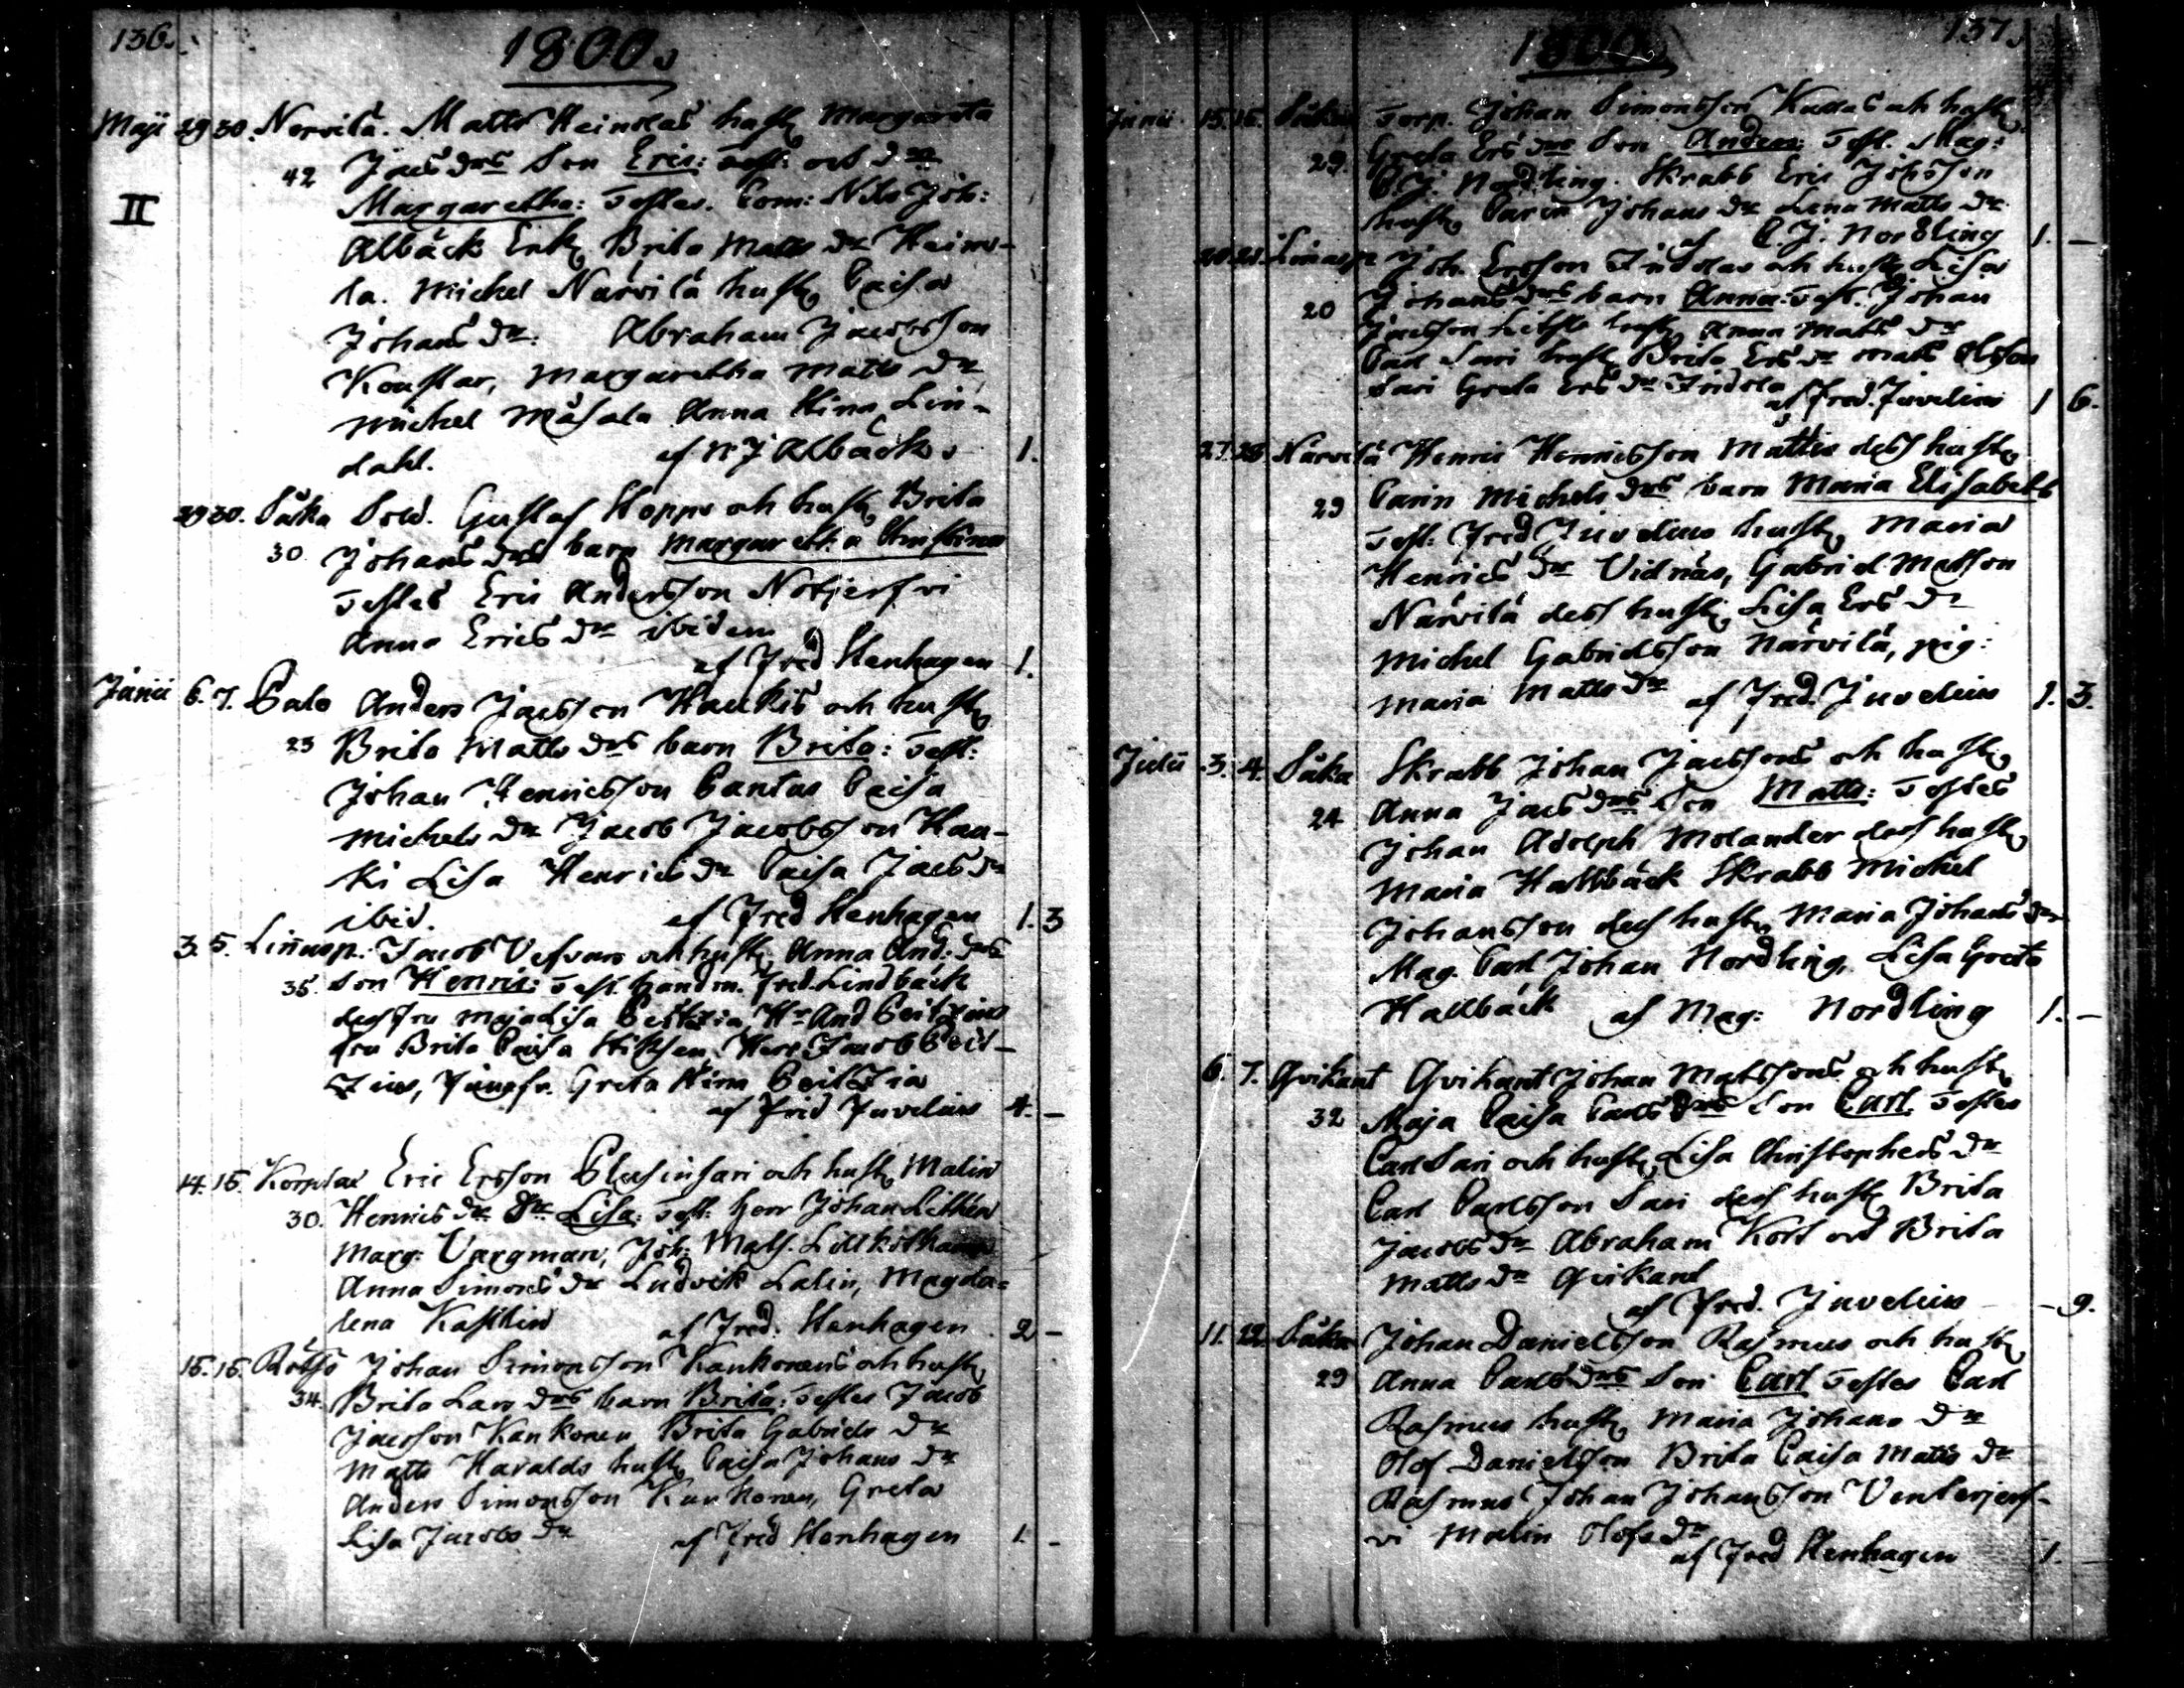 136.
1800.
Maji 29 30. Nervilä. Matts Heinolas hust. Margareta
42 Jacs drs Son Eric: test: och dr
II Margaretha: Testes. Com: Nils Joh:
Albäck Enk. Brita Matts dr Heino-
la. Michel Närvilä hust. Caisa
Johans dr. Abraham Jacobsson
Konstar, Margaretha Matts dr
Michel Måsala Anna Stina Lin-
dahl. af N J Albäck. 1.
29 30. Såka Sold. Gustaf Hopps och hust. Brita
30 Johans drs barn Margaretha Christina
Testes Eric Andersson Notjerfvi
Anna Erics dr ibidem
af Fred Stenhagen 1.
Junii 6. 7. Palo Anders Jacsson Haukis och hust.
23 Brita Matts drs barn Brita: Test:
Johan Henricsson Cantus Caisa
Michels dr Jacob Jacobsson Hau-
ki Lisa Henrics dr Caisa Jacs dr
ibid. af Fred Stenhagen 1. 3
3. 5. Linnusp. Jacob och hust. Anna And: drs
35. Son Henric: Test. Handm. Fred. Lindbäck
dess fru Maja Lisa Hr And
fru Brita Caisa Herr Jacob
Jumfr. Greta Stina
af Fred Juvelius 4. –
14. 15. Korplax Eric Ersson och hust. Malin
30. Henrics dr dr Lisa: Test: Herr Johan Lithen
Marg: Vargman, Joh: Mats.
Anna Simons dr Ludvik Lalin, Magda-
lena Kastlin af Fred: Stenhagen 2 –
15. 15. Rötsö Johan Simonsson Kankonens och hust.
34. Brita Lars drs barn Brita: Testes Jacob
Jacsson Kankonen Brita Gabriels dr
Matts Haralds hust. Caisa Johans dr
Anders Simonsson Kankonen, Greta
Lisa Jacobs dr af Fred Stenhagen 1. –
137.
1800.
Junii 15. 15. Såka Torp. Johan Simonsson Kullas och hust.
29. Greta Ers drs Son Anders: Test. Mag:
C. J. Nordling. Skrabb Eric Johsson
hust. Carin Johans dr Lena Matts dr
af C. J. Nordling 1. –
20 21. Linusp. Joh. Ersson Indolas och hust. Lisa
20 Johans drs barn Anna: Test. Johan
Jacsson hust. Anna Matts dr
Carl Sari hust. Brita Ers dr Matts Olsson
Sari Greta Ers dr Indola
af Fred. Juvelius 1 6.
27. 28 Närvilä Henric Henricsson Mattus dess hust.
29 Carin Michels drs barn Maria Elisabeth
Test: Fred Juvelius hust. Maria
Henrics dr Vidnäs, Gabriel Matsson
Närvilä dess hust. Lisa Ers dr
Michel Gabrielsson Närvilä, pig:
Maria Matts dr af Fred. Juvelius 1. 3.
Julii 3. 4. Såka Skrabb Johan Jacssons och hust.
24 Anna Jacs drs Son Matts: Testes
Johan Adolph Molander dess hust.
Maria Hallbäck Skrabb Michel
Johansson dess hust. Maria Johans dr
Mag. Carl Johan Nordling, Lisa Greta
Hallbäck af Mag: Nordling 1. –
6. 7. Qvikant Qvikant Johan Matssons och hust.
32 Maja Caisa Carls drs Son Carl. Testes
Carl Sari och hust. Lisa Christophers dr
Carl Carlsson Sari dess hust. Brita
Jacobs dr Abraham Kort och Brita
Matts dr Qvikant
af Fred. Juvelius – 9.
11. 12. Såka Johan Danielsson Rasmus och hust.
29 Anna Carls drs Son Carl Testes Carl
Rasmus hust. Maria Johans dr
Olof Danielsson Brita Caisa Matts dr
Rasmus Johan Johansson Venterjerf-
vi Malin Olofs dr
af Fred Stenhagen 1.